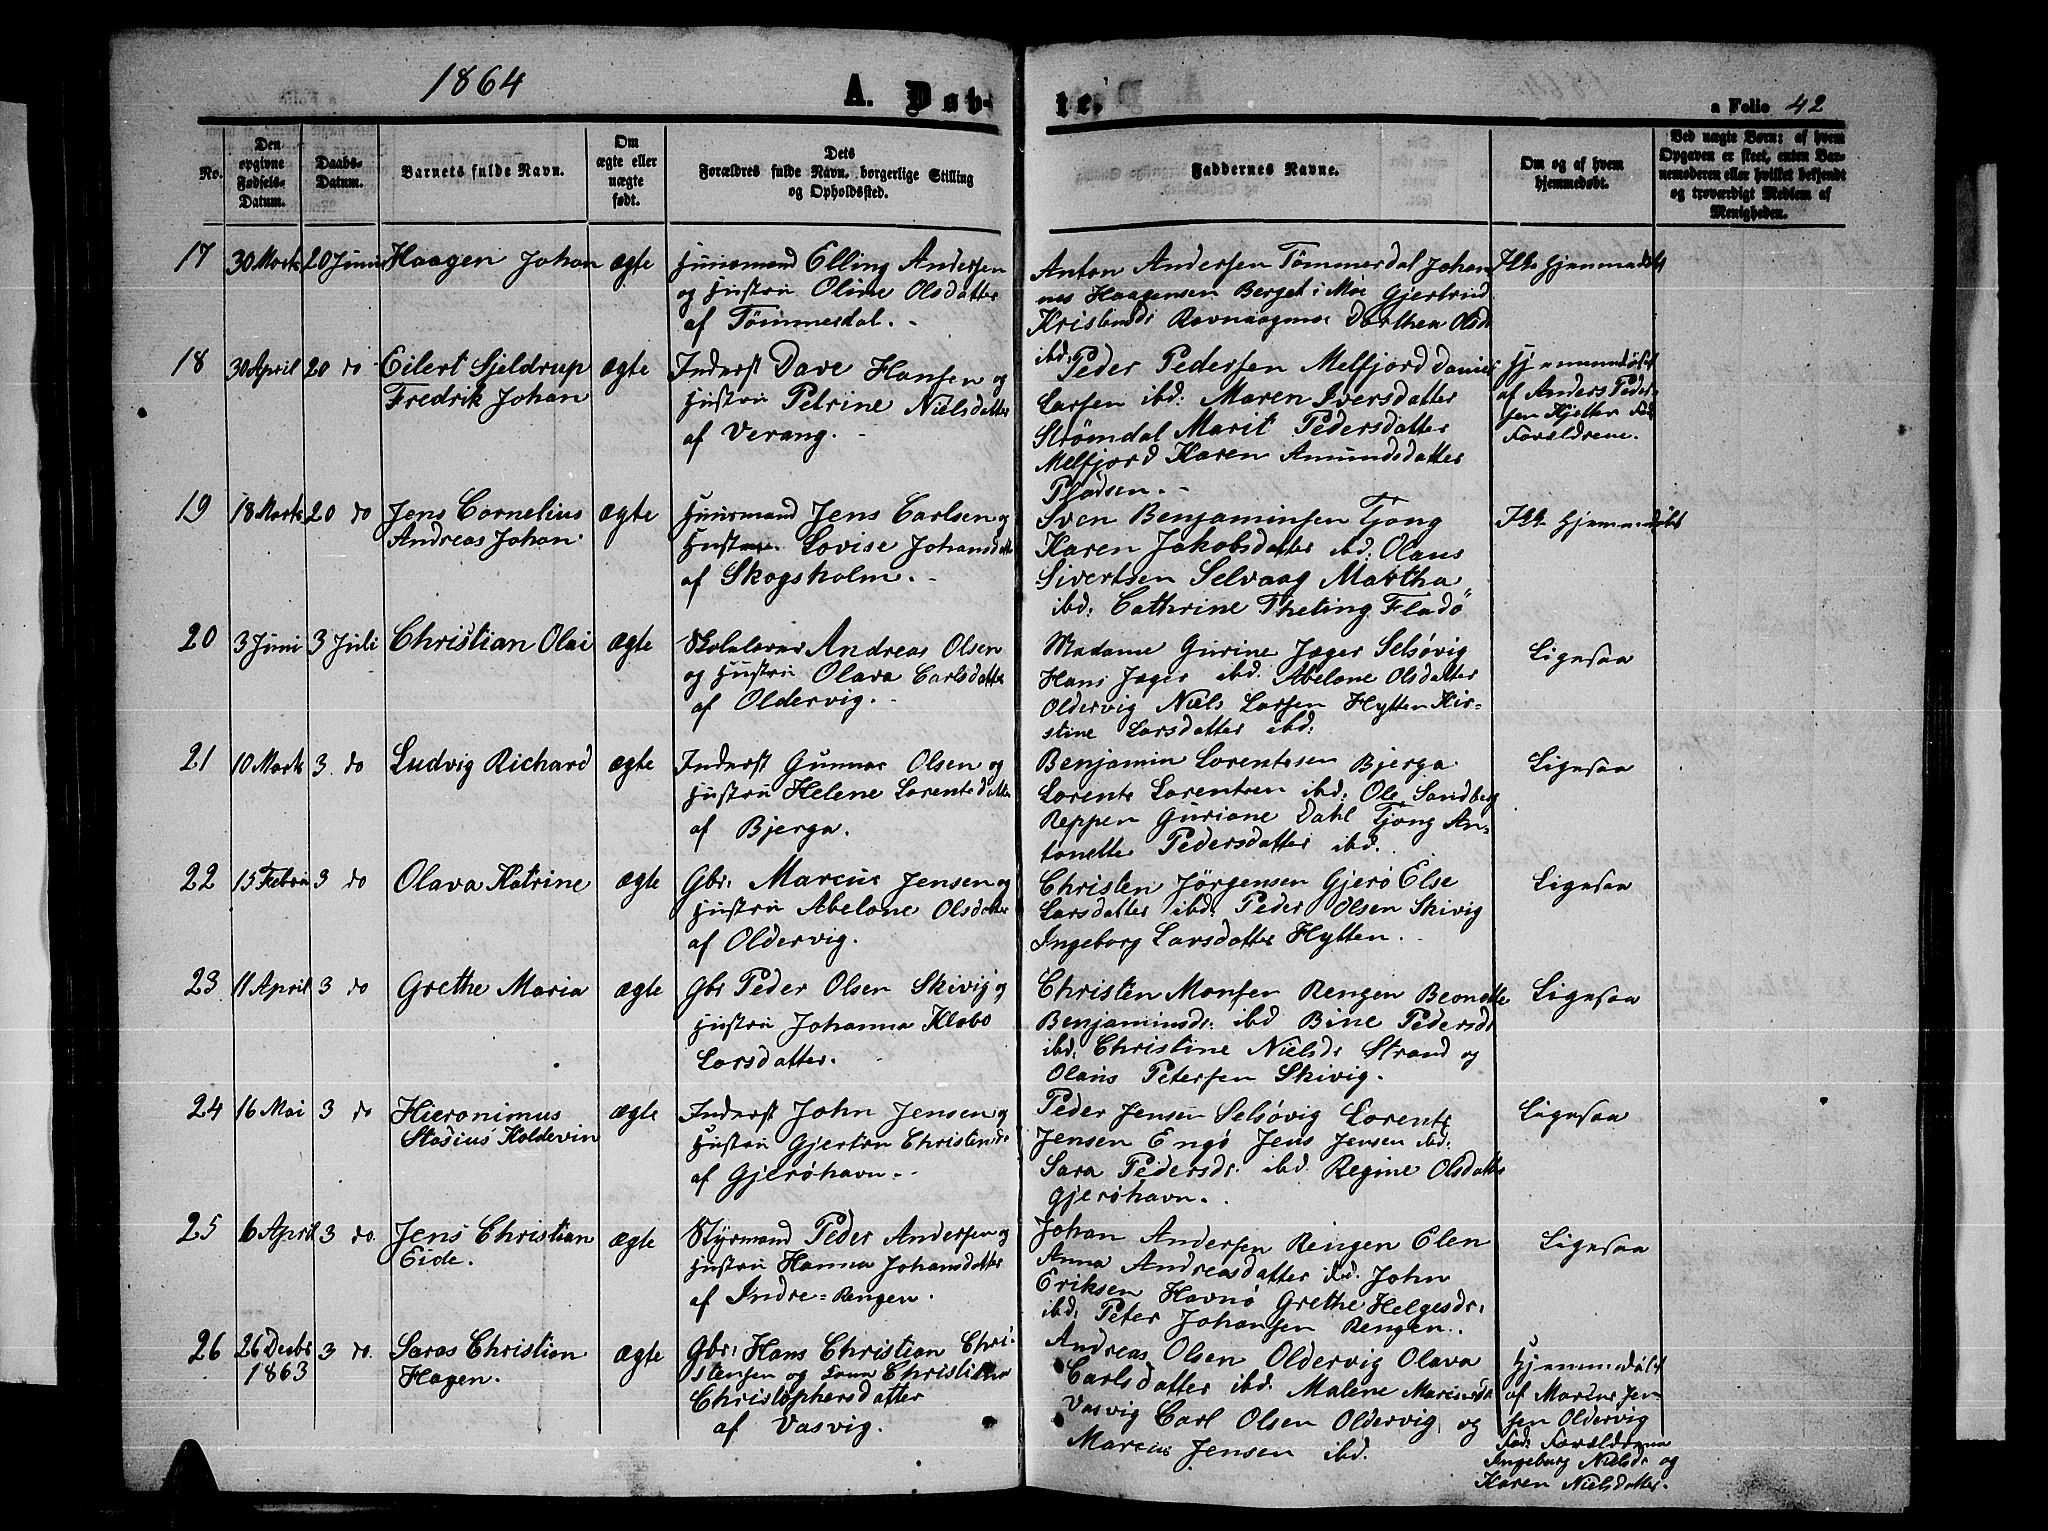 1864
A. Døb-
te.
a Folio 42
No.
Den
opgivne
Fødsels-
Datum.
Daabs-
Datum.
Barnets fulde Navn.
Om
ægte eller
uægte
født.
Dets
Forældres fulde Navn, borgerlige Stilling
og Opholdssted.
Faddernes Navne.
Om og af hvem
hjemmedøbt.
Ved uægte Børn: af hvem
Opgaven er skeet, enten Bar-
nemoderen eller hvilket bekjendt
og troværdigt Medlem af
Menigheden.
17 30 Marts 20 Juni Haagen Johan ægte
Huusmand Elling Andersen
og Hustru Oline Olsdatter
af Tömmerdal.
Anton Andersen Tömmerdal Johan
nes Haagensen Berget i Moe Gjertrud
Dorthea Olsdr
ibd:
Ikke hjemmedöbt
18 30 April 20 do Eilert Sjeldrup
Fredrik Johan
ægte
Inderst Dave Hansen og
Hustru Petrine Nielsdatter
af Verang.
Peder Pedersen Melfjord Daniel
Larsen ibd: Maren Iversdatter
Strømdal Marit Pedersdatter
Melfjord Karen Amundsdatter
Pladsen.
Hjemmedöbt
af Anders Peder-
sen Fad
Forældrene.
19 18 Marts 20 do Jens Cornelius
Andreas Johan
ægte
Huusmand Jens Carlsen og
Hustrue Lovise Johansdatter
af Skogsholm.
Sven Benjaminsen Tjong
Karen Jakobsdatter ibd: Olaus
Sivertsen Selvaag Martha
ibd: Cathrine Theting Fladö
Ikke Hjemmedöbt
20 3 Juni 3 Juli Christian Olai ægte
Skolelærer Andreas Olsen
og Hustru Olava Carlsdatter
af Oldervig.
Madame Gurine Jæger Selsövig
Hans Jæger ibd. Abelone Olsdatter
Oldervig Niels Larsen Hytten Kir-
stine Larsdatter ibd:
Ligesaa
21 10 Marts 3. do Ludvig Richard ægte
Inderst Gunnar Olsen og
Hustru Helene Lorentsdatter
af Bjerga.
Benjamin Lorentsen Bjerga
Lorents Lorentsen ibd: Ole Sandberg
Reppen Guriane Dahl Tjong An-
tonette Pedersdatter ibd.
Ligesaa
22 15 Febru 3 do Olava Katrine ægte
Gbr: Marcus Jensen og
Hustru Abelone Olsdatter
af Oldervig.
Christen Jörgensen Gjerö Else
Larsdatter ibd: Peder Olsen Skivig
Ingeborg Larsdatter Hytten.
Ligesaa
23 11 April 3 do Grethe Maria ægte
Gbr Peder Olsen Skivig og
Hustru Johanna Klæbo
Larsdatter.
Christen Monsen Rengen Beonette
Benjaminsdr: ibd Bine Pedersdr
ibd: Christine Nielsdr Strand og
Olaus Petersen Skivig.
Ligesaa
24 16 Mai 3 do Hieronimus
Stasius Koldevin
ægte
Inderst John Jensen og
Hustru Gjertru Christensdr
af Gjeröhavn.
Peder Jensen Selsövig Lorents
Jensen Engö Jens Jensen ibd:
Sara Pedersdr: ibd. Regine Olsdatter
Gjeröhavn.
Ligesaa
25 6 April 3 do. Jens Christian
Eide.
ægte
Styrmand Peder Andersen og
Hustru Hanna Johansdatter
af Indre-Rengen.
Johan Andersen Rengen Elen
Anna Andreasdatter ibd. John
Eriksen Havnö Grethe Helgesdr:
ibd: Peter Johansen Rengen.
Ligesaa
26 26 Decbr
1863
3 do. Saras Christian
Hagen.
ægte
Gbr: Hans Christian Chri-
stensen og Christina
Christophersdatter
af Vasvig.
Andreas Olsen Oldervig Olava
Carlsdatter ibd. Malene
Vasvig Carl Olsen Oldervig og
Marcus Jensen ibd.
Hjemmedöbt
af Marcus Jen-
sen Oldervig
Fad: Forældrene
Ingeborg Nielsdr og
Karen Nielsdatter.